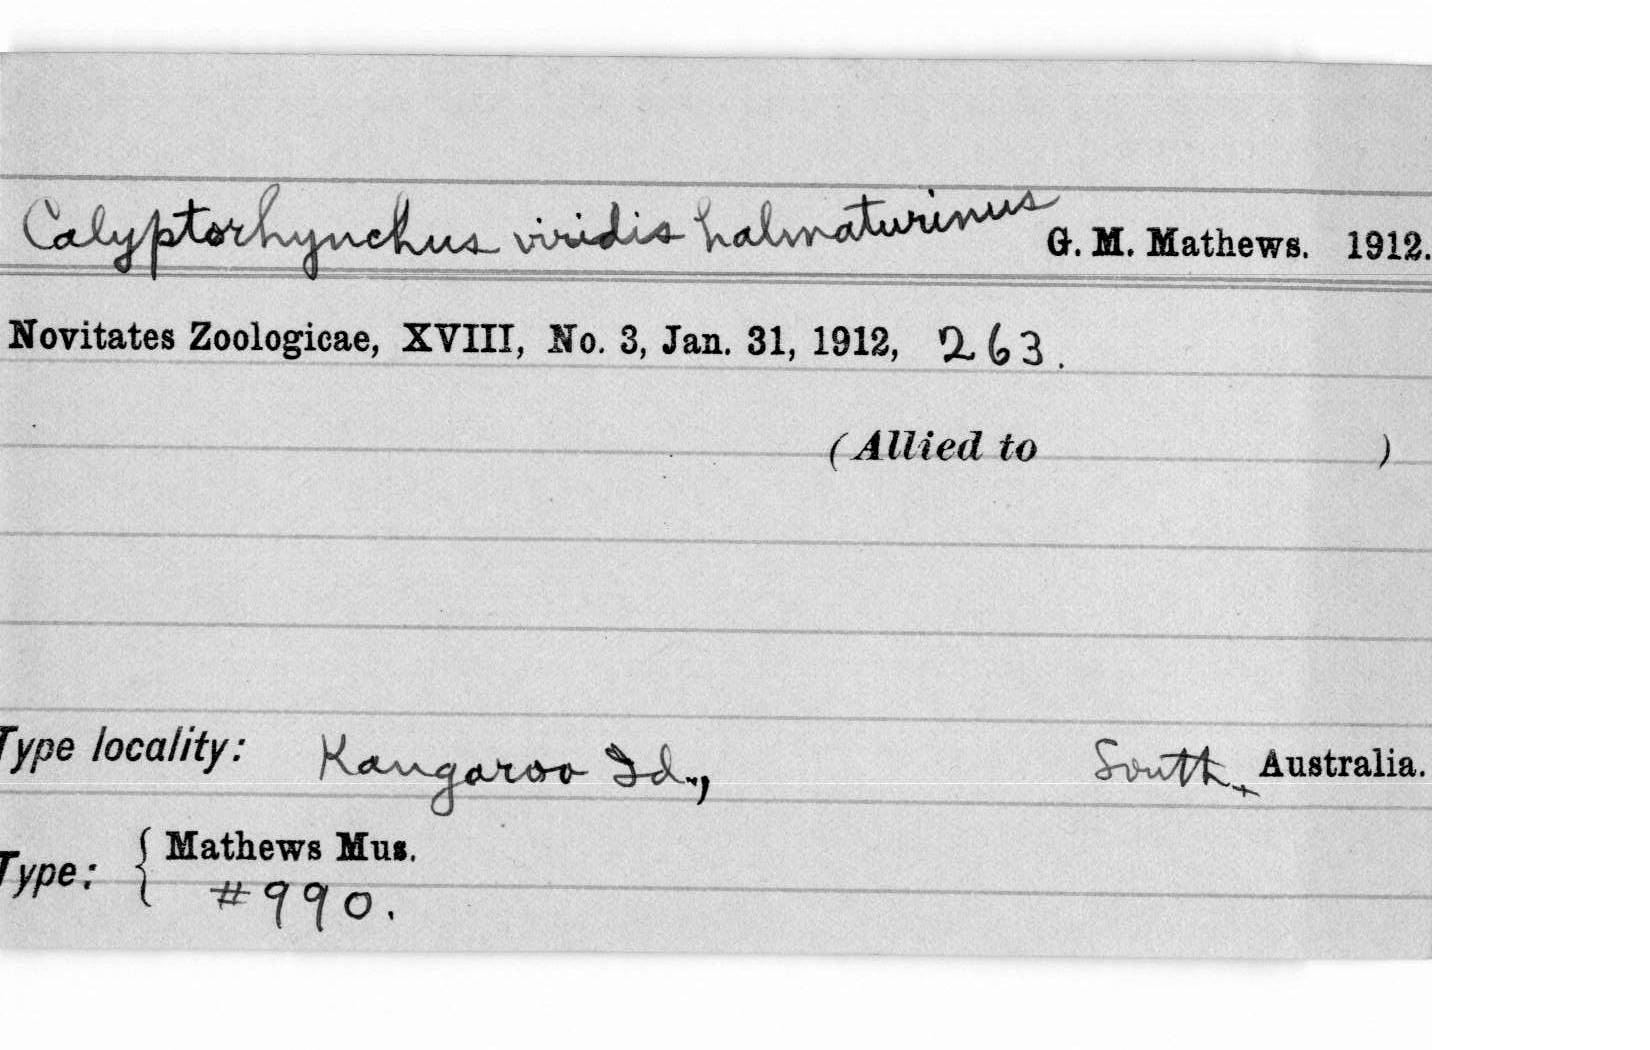 Calyptorhynchus viridis halmaturinus G. M. Mathews. 1912.
Novitates Zoologicae, XVIII, No. 3, Jan. 31, 1912, 263.
(Allied to )
Type locality: Kangaroo Id., South Australia.
Type: { Mathews Mus.
#990.